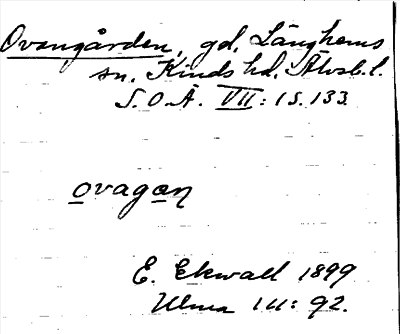 Ovangården, gd, Länghems
sn, Kinds hd, Älvsb. l.
S.O.Ä. VII: 1 s. 133.
ovagaɳ
E. Ekwall 1899
Ulma 111: 92.